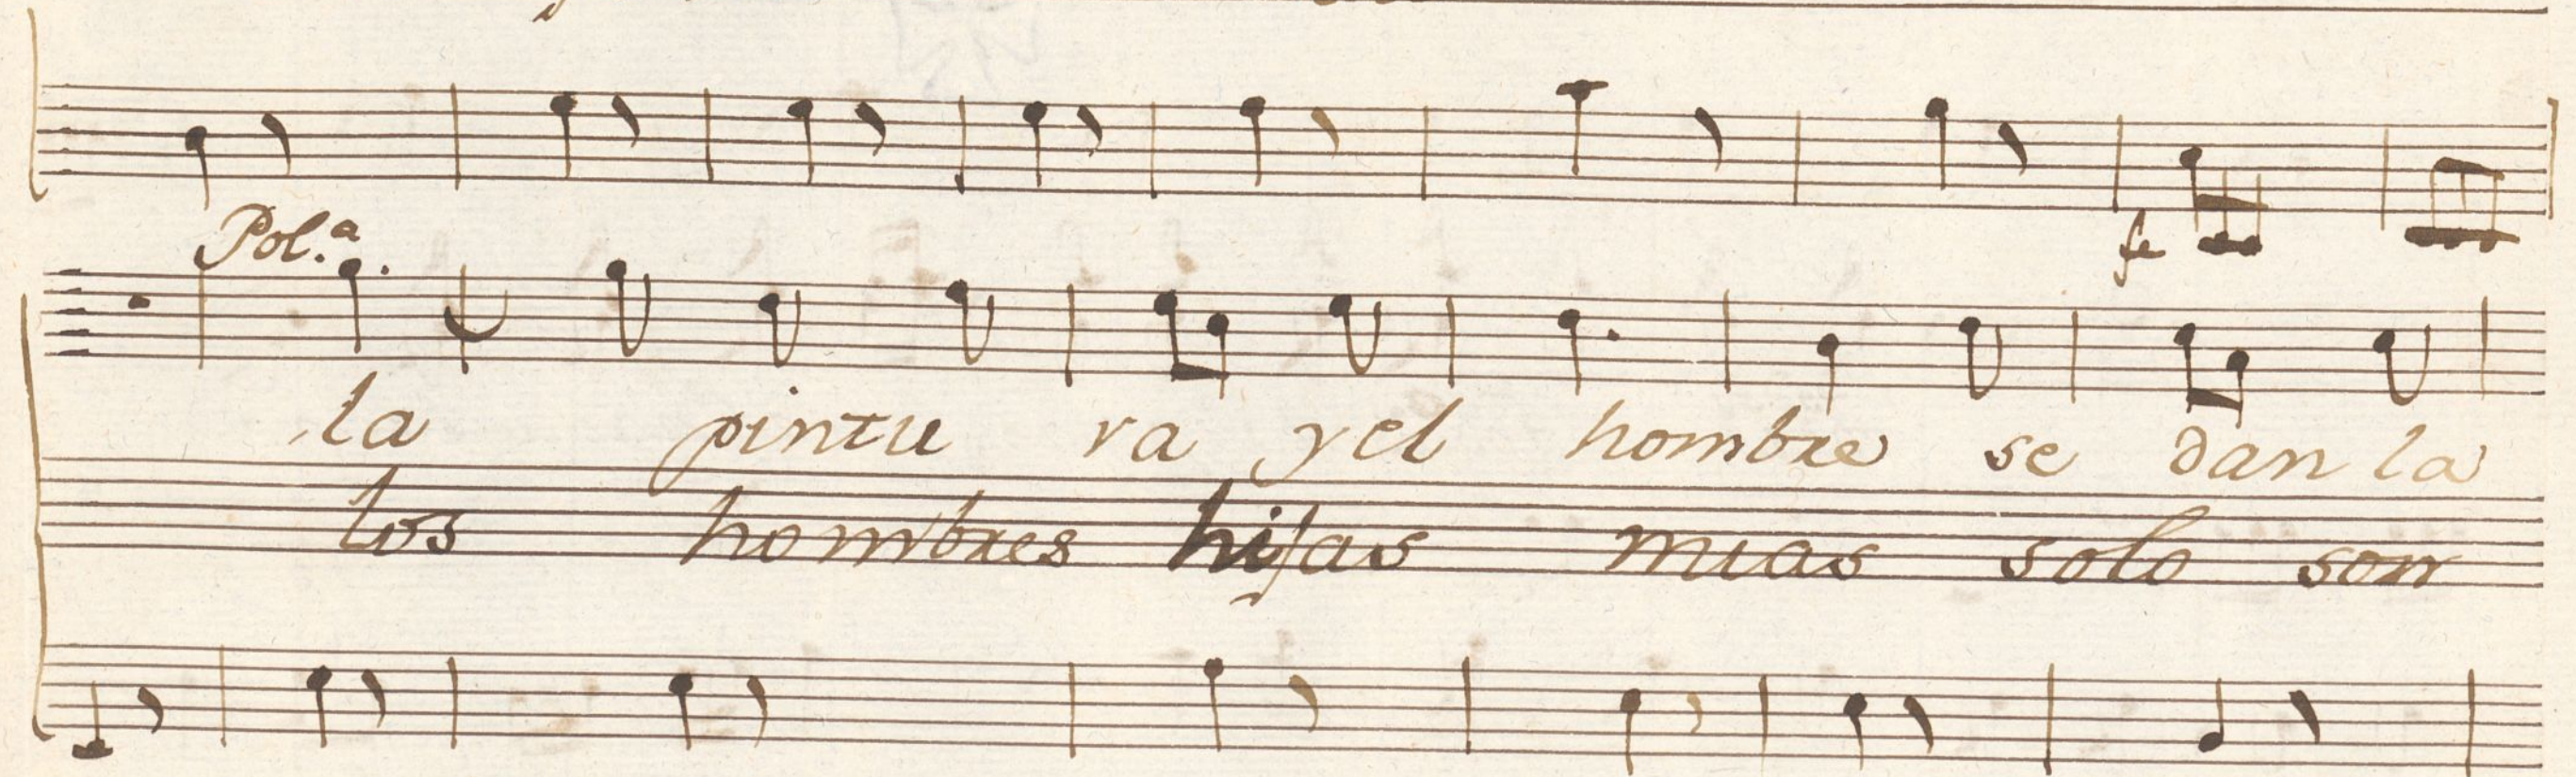 Pol.ª
fe
la pintu ra yel hombre se dan la
los hombres hijas mias solo son